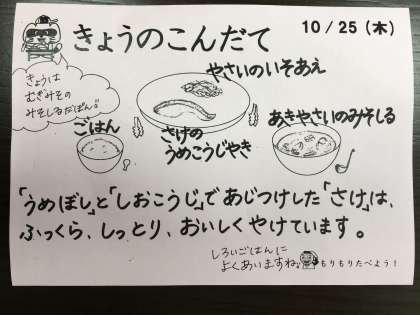 きょうのこんだて
10/25（木）
きょうは
むぎみその
みそしるだぽん。
やさいのいそあえ
ごはん
さけの
うめこうじやき
あきやさいのみそしる
「うめぼし」と「しおこうじ」であじつけした「さけ」は、
ふっくら、しっとり、おいしくやけています。
しろいごはんに
よくあいますね♪
もりもりたべよう！